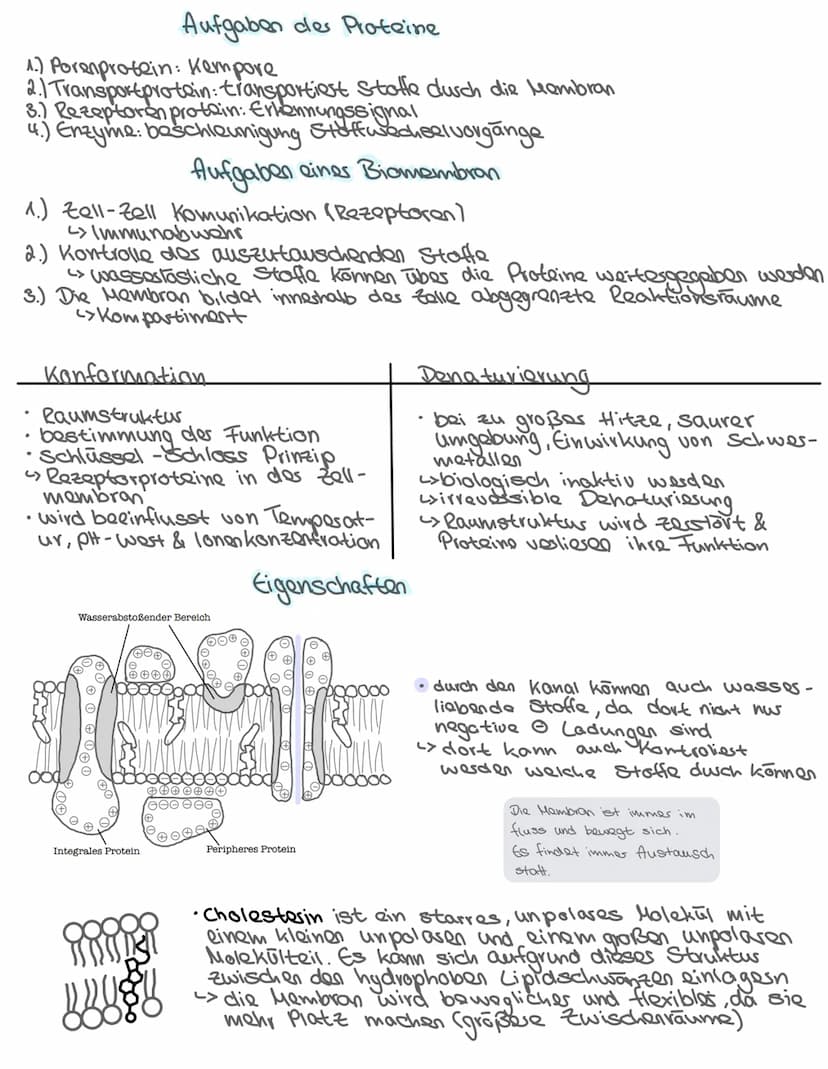 Aufgaben der Proteine
1.) Porenprotein: Kernpore
2.) Transportprotein: transportiert Stoffe durch die Membran
3.) Rezeptorenprotein: Erkennungssignal
4.) Enzyme: beschleunigung Stoffwechselvorgänge
Aufgaben einer Biomembran
1.) Zell-Zell Komunikation (Rezeptoren)
↳ Immunabwehr
2.) Kontrolle der auszutauschenden Stoffe
↳ wasserlösliche Stoffe können über die Proteine weitergegeben werden
3.) Die Membran bildet innerhalb der Zelle abgegrenzte Reaktionsräume
↳ Kompartiment
Konformation
• Raumstruktur
• bestimmung der Funktion
• Schlüssel-Schloss Prinzip
↳ Rezeptorproteine in der Zell-
membran
• wird beeinflusst von Temperat-
ur, pH-Wert & Ionenkonzentration
Denaturierung
• bei zu großer Hitze, saurer
Umgebung, Einwirkung von Schwer-
metallen
↳ biologisch inaktiv werden
↳ irreversible Denaturierung
↳ Raumstruktur wird zerstört &
Proteine verlieren ihre Funktion
Eigenschaften
Wasserabstoßender Bereich
Integrales Protein
Peripheres Protein
• durch den Kanal können auch wasser-
liebende Stoffe, da dort nicht nur
negative ⊖ Ladungen sind
↳ dort kann auch Kontroliert
werden welche Stoffe durch können
Die Membran ist immer im
fluss und bewegt sich.
Es findet immer Austausch
statt.
• Cholesterin ist ein starres, unpolares Molekül mit
einem kleinen unpolaren und einem großen unpolaren
Molekülteil. Es kann sich aufgrund dieser Struktur
zwischen den hydrophoben Lipidschwänzen einlagern
↳ die Membran wird beweglicher und flexibler, da sie
mehr Platz machen (größere Zwischenräume)